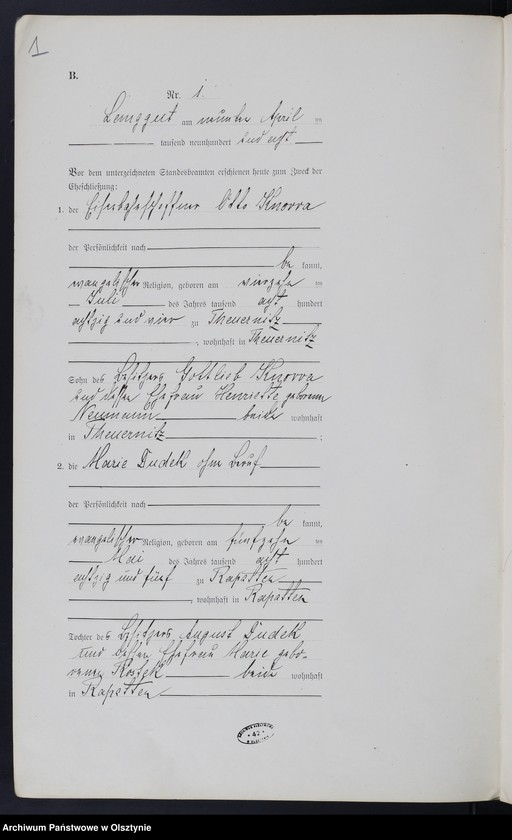 1
B.
Nr. 1.
Lenggut am neunten April
tausend neunhundert und acht
Vor dem unterzeichneten Standesbeamten erschienen heute zum Zweck der
Eheschließung:
1. der Eisenbahnschaffner Otto Knorra
der Persönlichkeit nach
be kannt,
evangelischer Religion, geboren am vierzehn
Juli des Jahres tausend acht hundert
achtzig und vier zu Theuernitz
, wohnhaft in Theuernitz
Sohn des Besitzers Gottlieb Knorra
und dessen Ehefrau Henriette geborenen
Neumann beide wohnhaft
in Theuernitz ;
2. die Marie Dudek ohne Beruf
der Persönlichkeit nach
be kannt,
evangelischer Religion, geboren am fünfzehn
Mai des Jahres tausend acht hundert
achtzig und fünf zu Rapatten
, wohnhaft in Rapatten
Tochter des Besitzers August Dudek
und dessen Ehefrau Marie gebo-
renen beide wohnhaft
in Rapatten
42
Archiwum Państwowe w Olsztynie